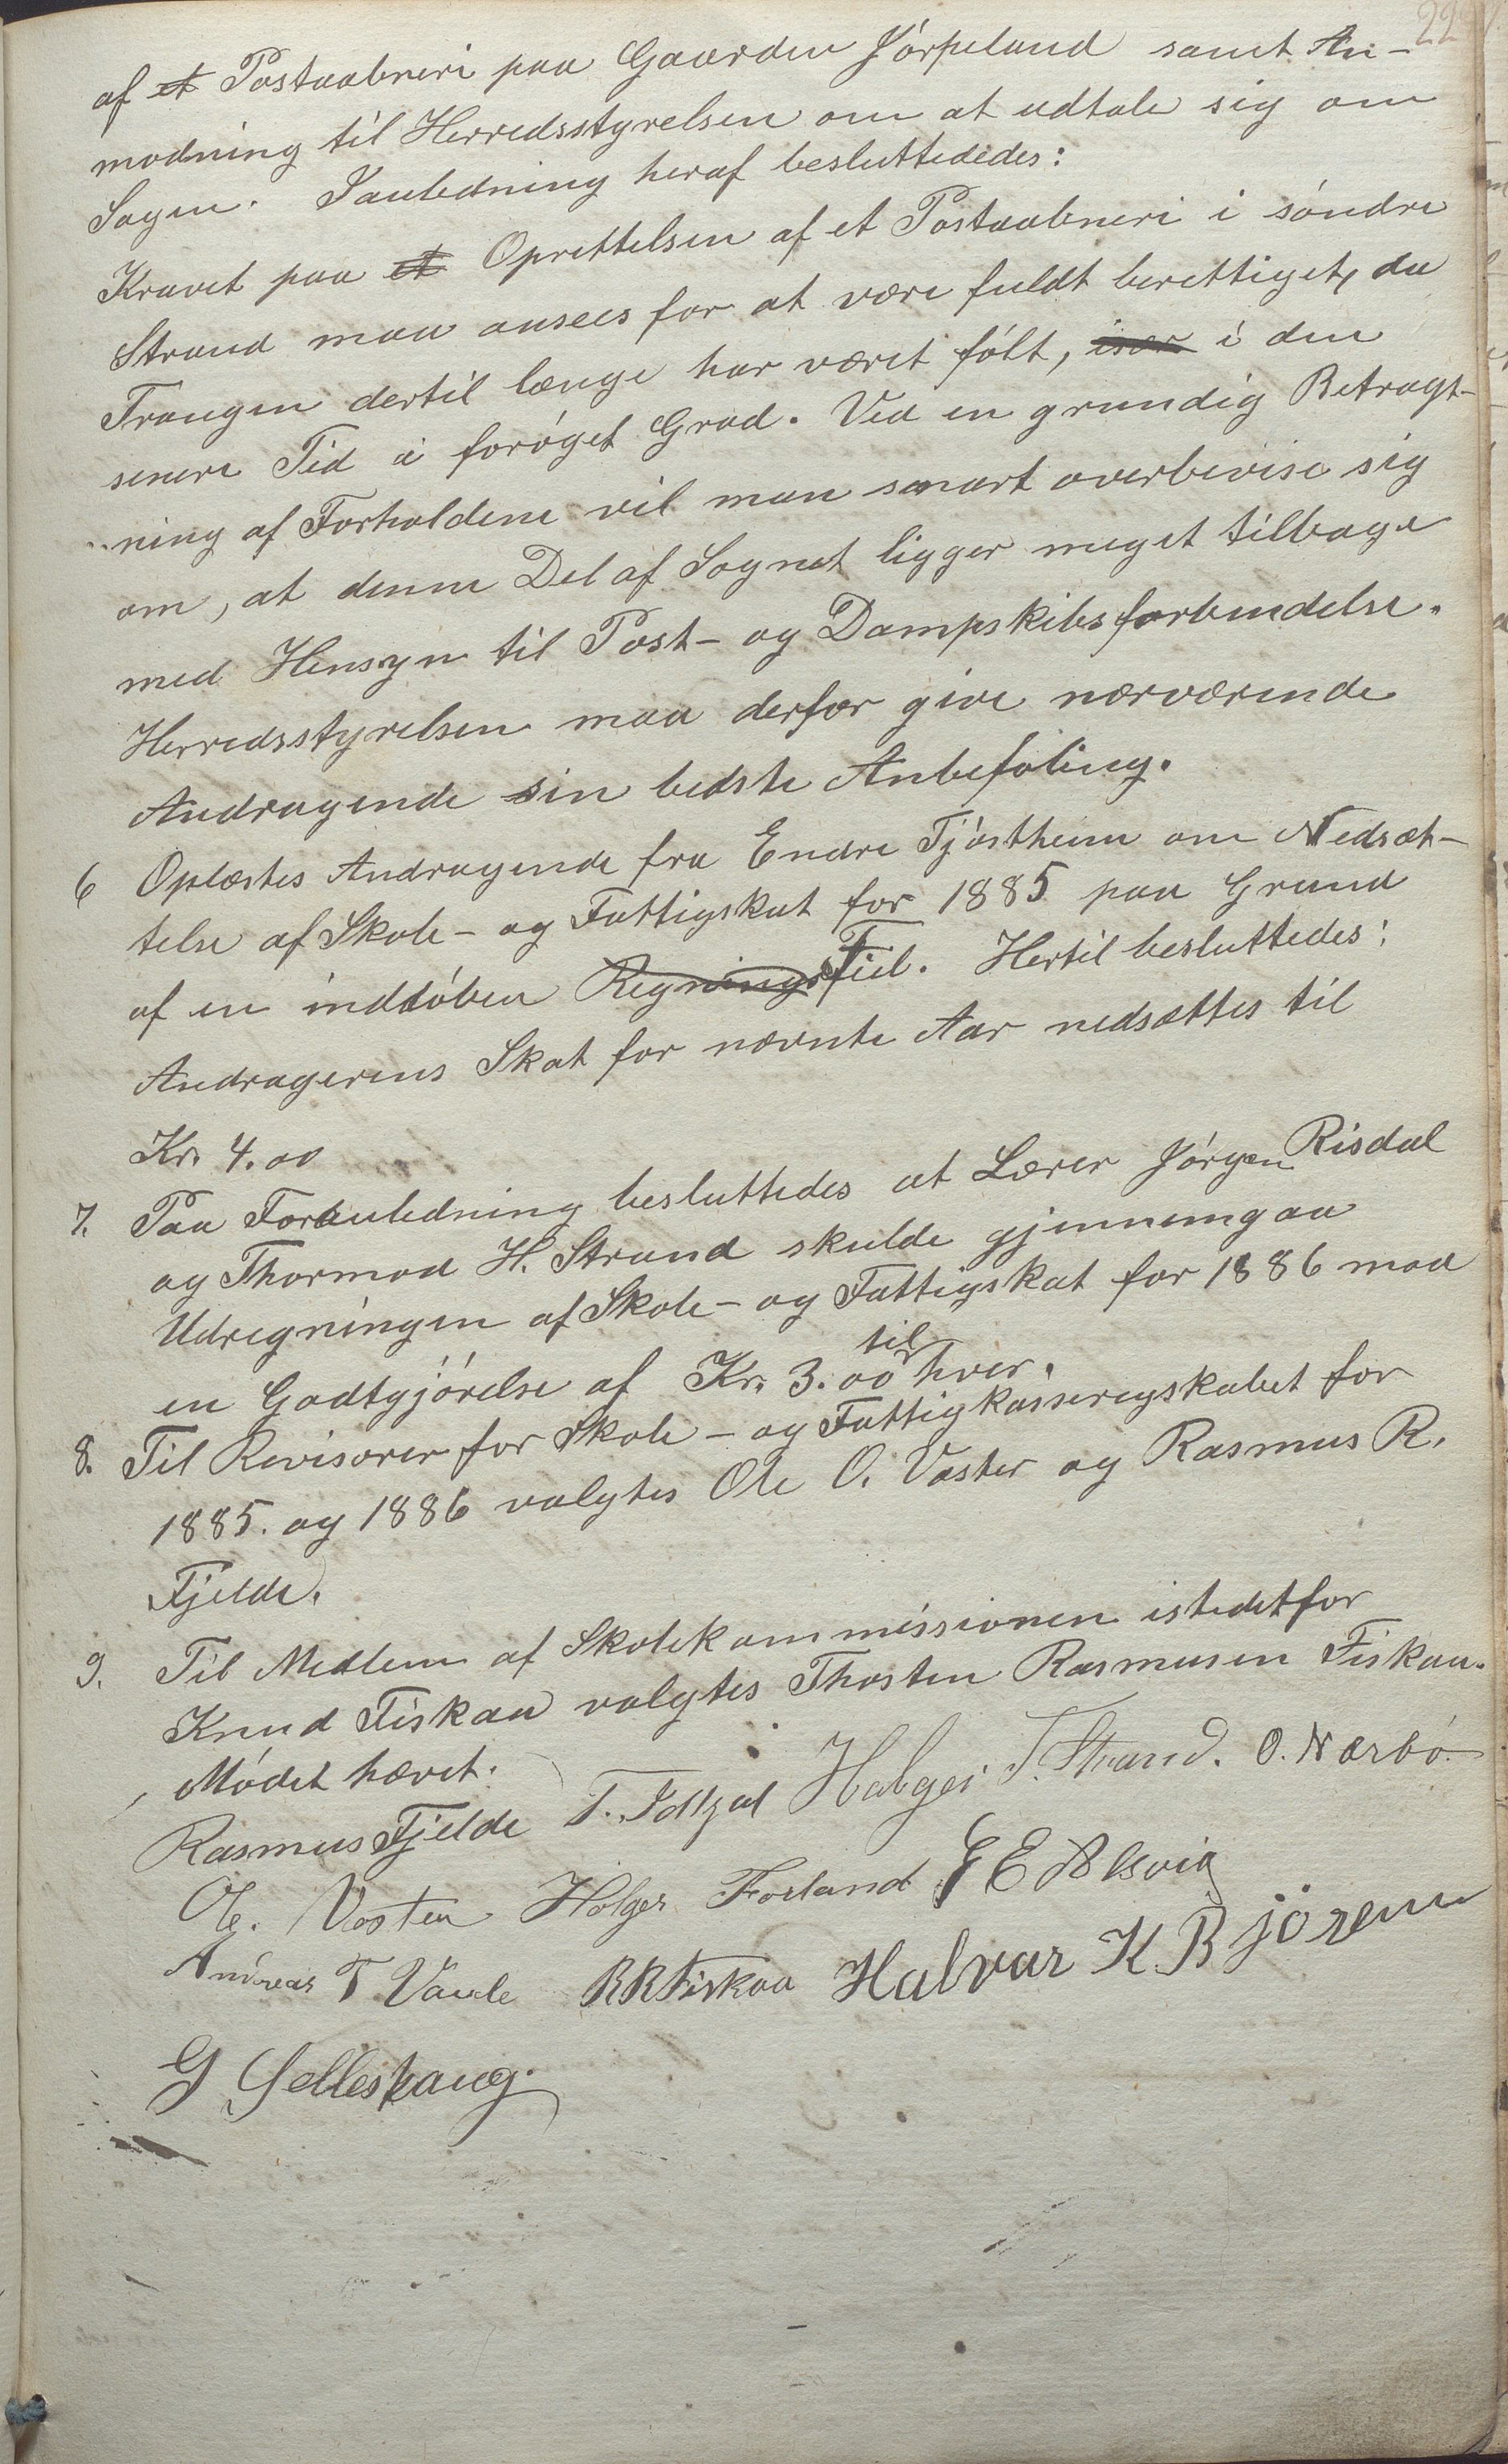 af et Postaabneri paa Gaarden Jørpeland samt An-
modning til Herredsstyrelsen om at udtale sig om
Sagen. Ianledning heraf besluttededes:
Kravet paa et Oprettelsen af et Postaabneri i søndre
Strand maa ansees for at være fuldt berettiget, da
Trangen dertil længe har været følt, især i den
senere Tid i forøget Grad. Ved en grundig Betragt-
ning af Forholdene vil man snart overbevise sig
om, at denne Del af Sognet ligger meget tilbage
med Hensyn til Post- og Dampskibsforbindelse.
Herredsstyrelsen maa derfor give nærværende
Andragende sin bedste Anbefaling.
6 Oplæstes Andragende fra Endre Tjøstheim om Nedsæt-
telse af Skole- og Fattigskat for 1885 paa Grund
af en indløben Regnings Feil. Hertil besluttedes:
Andragerens Skat for nævnte Aar nedsættes til
Kr. 4.00
7. Paa Foranledning besluttedes at Lærer Jørgen Risdal
og Thormod H. Strand skulde gjennemgaa
Udregningen af Skole- og Fattigskat for 1886 mod
en Godtgjørelse af Kr. 3.00 til hver.
8. Til Revisorer for Skole- og Fattigkasseregskabet for
1885. og 1886 valgtes Ole O. Vaster og Rasmus R.
Fjelde.
9. Til Medlem af Skolekommissionen istedetfor
Knud Fiskaa valgtes Thosten Rasmusen Fiskaa.
Mødet hævet.
Rasmus Fjelde T. Holger T. Strand. O. Nærbø
Ole. Vosten Holger Forland G E Alsvig
Andreas T Vaule R R Fiskaa Halvar K Bjørem
G Selleskaug.